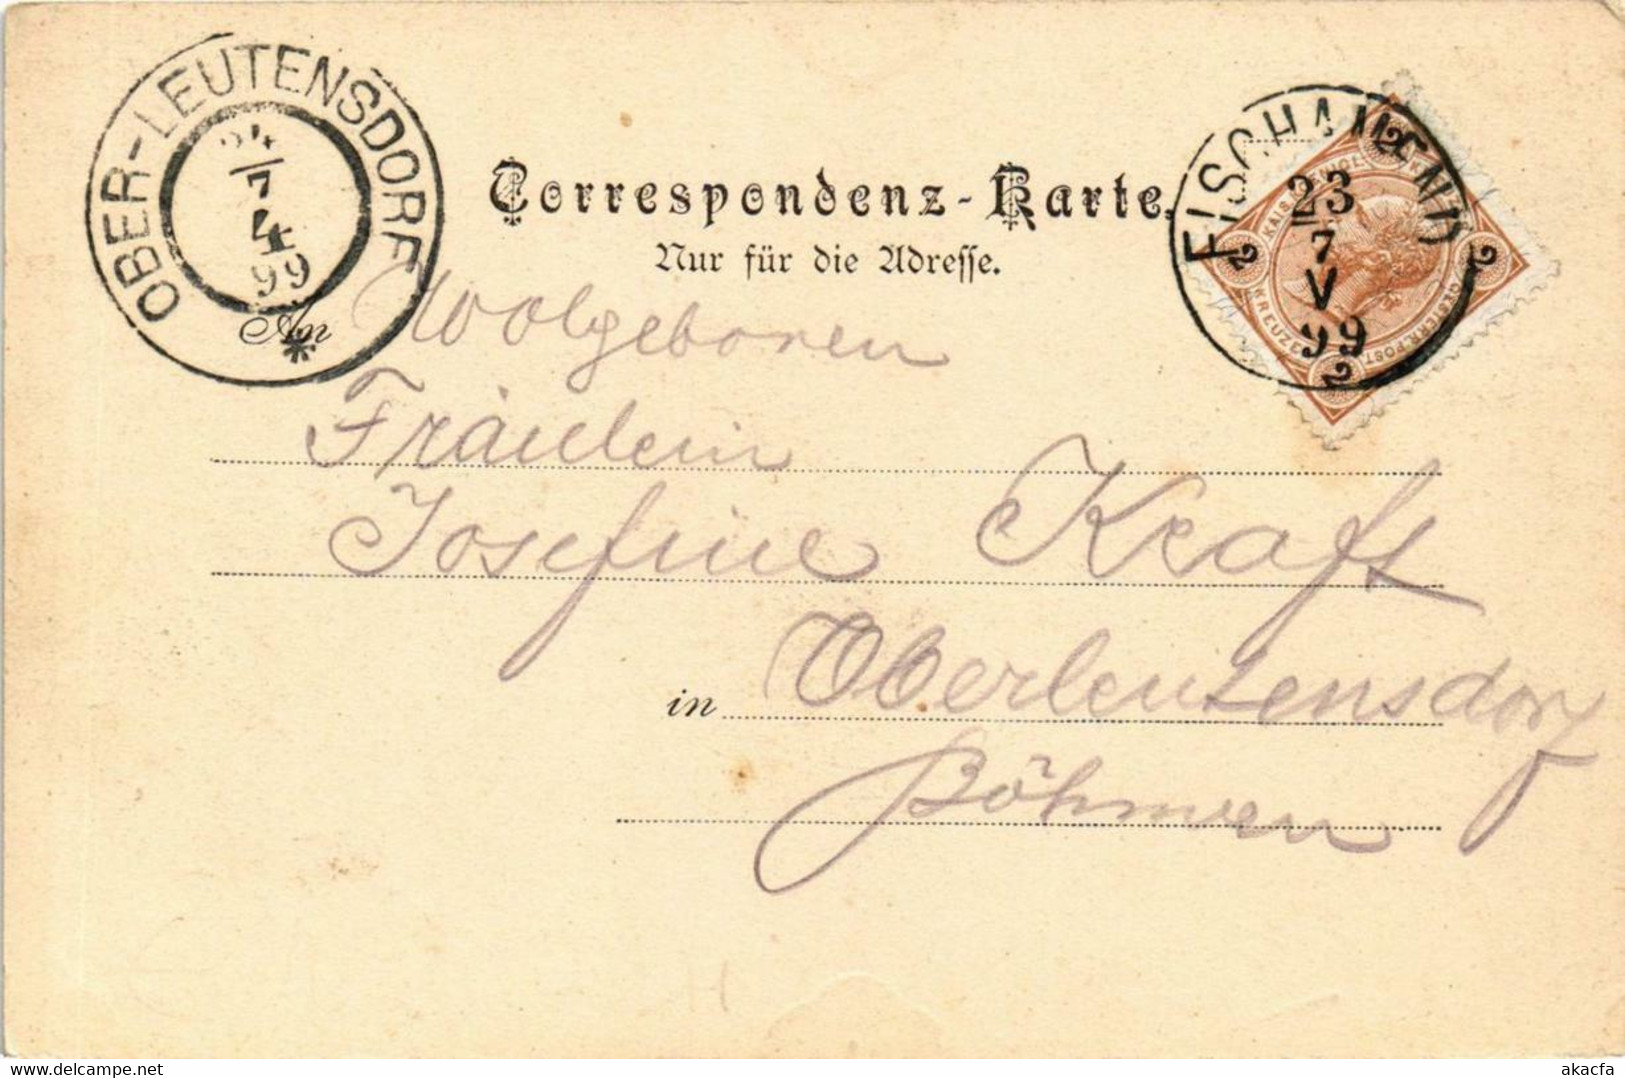 OBER-LEUTENSDORF
24/7
4
99
Correspondenz-Karte.
Nur für die Adresse.
FISCHAMEND
23/7
V
99
2 2 2 2
KREUZER
OESTERR. POST
An Woolgeboren
Fräulein
Josefine Kraft
in Oberleutensdorf
Böhmen
www.delcampe.net
akacfa